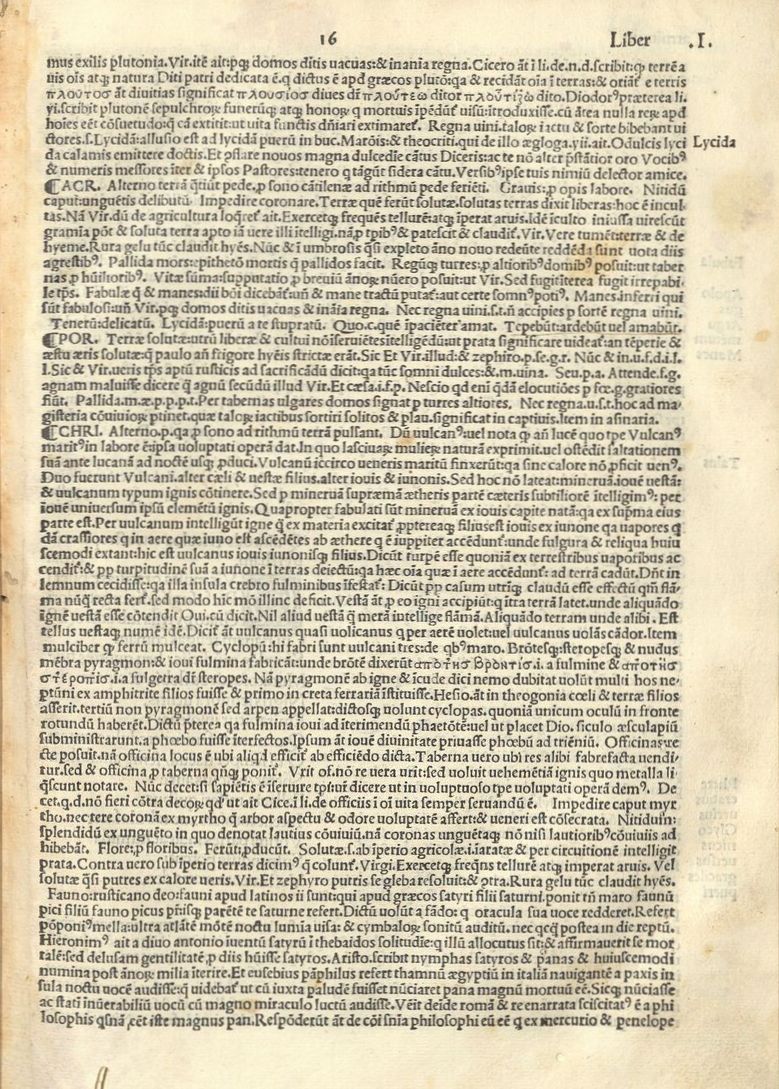 16 Liber .I.
mus exilis plutonia. Vir.itē ait:pꝗ domos dītis uacuas:& inania regna. Cicero āt ī li.de.n.d.scribit:ꝙ terrē a
uis oīs atꝗ natura Diti patri dedicata ē.q dictus ē apd græcos plutō:qa & recidāt oīa ī terras:& oriāť e terris
πλουτος āt diuitias significat πλουσιος diues dī πλουτεω ditor πλουτιζω dito. Diodorꝰ præterea li.
Regna uini.talorꝝ iactu & sorte bibebant ui
ctores.s. Lycidā:allusio est ad lycidā puerū in buc. Marōis:& theocriti.qui de illo ægloga.vii.ait. O dulcis lyci
Lycida
da calamis emittere doctis. Et pflare nouos magna dulcedine cātus Diceris:ac te nō alter
& numeris messores īter & ipsos Pastores:tenero q tāgūt sidera cātu. Versibꝰ ipse tuis nimiū delector amice.
¶ACR. Alterno terrā q̄tiūt pede. ꝓ sono cātilenæ ad rithmū pede feriēti. Grauis: ꝓ opis labore. Nitidū
caput:unguētis delibutū Impedire coronare. Terræ quē ferūt solutæ.solutas terras dixit liberas:hoc ē incul
tas. Nā Vir.dū de agricultura loqreť ait. Exercetꝗ frequēs tellurē:atꝗ īperat aruis. Idē īculto iniussa uirescūt
gramīa pōt & soluta terra apto iā uere illi ītelligi.nā ꝓ tpibꝰ & patescit & claudiť. Vir. Vere tumēt:terræ & de
hyeme. Rura gelu tūc claudit hyēs. Nūc & ī umbrosis q̄si expleto āno nouo redeūte reddēda sunt uota diis
agrestibꝰ. Pallida mors:epithetō mortis q pallidos facit. Regūꝗ turres: ꝓ altioribꝰ domibꝰ posuit:ut taber
nas ꝓ hūilioribꝰ. Vitæ sūma:supputatio ꝓ breuiū ānorꝝ nūero posuit:ut Vir. Sed fugit īterea fugit irrepabi
le tps. Fabulæ q̄ & manes:dii bōi dicebāť:uñ & mane tractū putāť:aut certe somnꝰ potiꝰ. Manes.inferri qui
sūt fabulosi:uñ Vir.pꝗ domos dītis uacuas & ināia regna. Nec regna uini.s.t.ñ accipies ꝑ sortē regna uini.
Tenerū:delicatū. Lycidā:puerū a te stupratū. Quo.c.quē īpaciēter amat. Tepebūt:ardebūt uel amabūt.
¶POR. Terræ solutæ:utrū liberæ & cultui nō īseruiētes ītelligēdū:ut prata significare uideať:an tēperie &
æstu æris solutæ:q̄ paulo añ frigore hyēis strictæ erāt. Sic et Vir.illud:& zephiro.p.se.g.r. Nūc & in.u.f.d.i.l.
I. Sic & Vir.ueris tps aptū rusticis ad sacrificādū dicit:qa tūc somni dulces:& m.uina. Seu.p.a. Attende.f.g.
agnam maluisse dicere q̄ agnū secūdū illud Vir. Et cæsa.i.f.p. Nescio qd enī q̄dā elocutiōes ꝑ fœ.g.gratiores
fiūt. Pallida.m.æ.p.p.p.t. Per tabernas ulgares domos signat ꝑ turres altiores. Nec regna.u.s.t.hoc ad ma-
gisteria cōuiuiorꝝ ptinet.quæ talorꝝ iactibus sortiri solitos & plau.significat in captiuis. Item in asinaria.
¶CHRI. Alterno.p.qa ꝓ sono ad rithmū terrā pulsant. Dū uulcanꝰ:uel nota ꝙ añ lucē quo tpe Vulcanꝰ
maritꝰ in labore ē:ipsa uoluptati operā dat. In quo lasciuarꝝ mulierꝝ naturā exprimit.uel ostēdit saltationem
suā ante lucanā ad noctē usꝗ ꝓduci. Vulcanū iccirco ueneris maritū finxerūt:qa sine calore nō ꝓficit uenꝰ.
Duo fuerunt Vulcani.alter cæli & uestæ filius.alter iouis & iunonis. Sed hoc nō lateat:mineruā.iouē uestā:
& uulcanum typum ignis cōtinere. Sed ꝑ mineruā supræmā ætheris partē cæteris subtiliorē ītelligimꝰ: per
iouē universum ipsū elemētū ignis. Quapropter fabulati sūt mineruā ex iouis capite natā:qa ex suprema eius
parte est. Per uulcanum intelligūt igne q̄ ex materia excitať.ꝓptereaꝗ filius est iouis ex iunone qa uapores q
dā crassiores q in aere quæ iuno est ascēdētes ab æthere q ē iuppiter accēdunť:unde fulgura & reliqua huiu
scemodi extant:hic est uulcanus iouis iunonisꝗ filius. Dicūt turpē esse quoniā ex terrestribus uaporibus ac
cendiť:& pp turpitudinē suā a iunone ī terras deiectū:qa hæc oīa quæ ī aere accēdunť: ad terrā cadūt. Dñt in
lemnum cecidisse:qa illa insula crebro fulminibus īfestať: Dicūt pp casum utriꝗ claudū esse effectū qm̄ flā-
ma nūq̄ recta ferť.sed modo hic mō illinc deficit. Vestā āt ꝓ eo igni accipiūt:q ītra terrā latet.unde aliquādo
ignē uestā esse cōtendit Oui.cū dicit. Nil aliud uestā q̄ merā intellige flāmā. Aliquādo terram unde alibi. Est
tellus uestaꝗ numē idē. Diciť āt uulcanus quasi uolicanus q per aerē uolet:uel uulcanus uolās cādor. Item
mulciber q ferrū mulceat. Cyclopū:hi fabri sunt uulcani tres:de qbꝰ maro. Brōtesꝗ:steropesꝗ & nudus
mēbra pyragmon:& ioui fulmina fabricāt:unde brōtē dixerūt
Nā pyragmonē ab igne & īcude dici nemo dubitat uolūt multi hos ne-
ptūni ex amphitrite filios fuisse & primo in creta ferrariā īstituisse. Hesio.āt in theogonia cœli & terræ filios
asserit.tertiū non pyragmonē sed arpen appellat:dictosꝗ uolunt cyclopas.quoniā unicum oculū in fronte
rotundū haberēt. Dictū pterea qa fulmina ioui ad īterimendū phaetōtē:uel ut placet Dio. siculo æsculapiū
subministrarunt.a phœbo fuisse īterfectos. Ipsum āt iouē diuinitate priuasse phœbū ad triēniū. Officinas:re
cte posuit.nā officina locus ē ubi aliqd efficiť ab efficiēdo dicta. Taberna uero ubi res alibi fabrefacta uendi
tur.sed & officina ꝓ taberna qñꝗ poniť. Vrit of.nō re uera urit:sed uoluit uehemētiā ignis quo metalla li-
q̄scunt notare.
cet.q.d.nō fieri cōtra decorꝝ qdꝰ ut ait Cice.ī li.de officiis ī oī uita semper seruandū ē. Impedire caput myr
tho.nectere coronā ex myrtho q̄ arbor aspectu & odore uoluptatē affert:& ueneri est cōsecrata. Nitidum:
splendidū ex unguēto in quo denotat lautius cōuiuiū.nā coronas unguētaꝗ nō nisi lautioribꝰ cōuiuiis ad
hibebāt. Flore:ꝓ floribus. Ferūt:ꝓducūt. Solutæ.s.ab īperio agricolæ.i.īaratæ & per circuitionē intelligit
prata. Contra uero sub īperio terras dicimꝰ q̄ colunť. Virgi. Exercetꝗ freqñs tellurē atꝗ imperat aruis. Vel
solutæ q̄si putres ex calore ueris. Vir. Et zephyro putris se gleba resoluit:& ɔtra. Rura gelu tūc claudit hyēs.
Fauno:rusticano deo:fauni apud latinos ii sunt:qui apud græcos satyri filii saturni.ponit tñ maro faunū
pici filiū fauno picus prīsꝗ parētē te saturne refert. Dictū uolūt a fādo: q oracula sua uoce redderet. Refert
pōponiꝰ mella:ultra atlātē mōtē noctu lumīa uisa:& cymbalorꝝ sonitū auditū.nec qcꝗ postea in die reptū.
Hieronimꝰ ait a diuo antonio iuentū satyrū ī thebaidos solitudīe:q illū allocutus sit:& affirmauerit se mor
talē:sed delusam gentilitatē ꝓ diis hūisse satyros. Aristo.scribit nymphas satyros & panas & huiuscemodi
numina post ānorꝝ milia īterire. Et eusebius pāphilus refert thamnū ægyptiū in italiā nauigantē a paxis in
sula noctu uocē audisse:q uidebať ut cū iuxta paludē fuisset nūciaret pana magnū mortuū eē. Sicꝗ nūciasse
ac statī īnūerabiliū uocū cū magno miraculo luctū audisse. Vēit deīde romā & re enarrata sciscitatꝰ ē a phi
losophis qsnā eēt iste magnus pan. Respōderūt āt de cōi snīa philosophi eū eē q ex mercurio & penelope